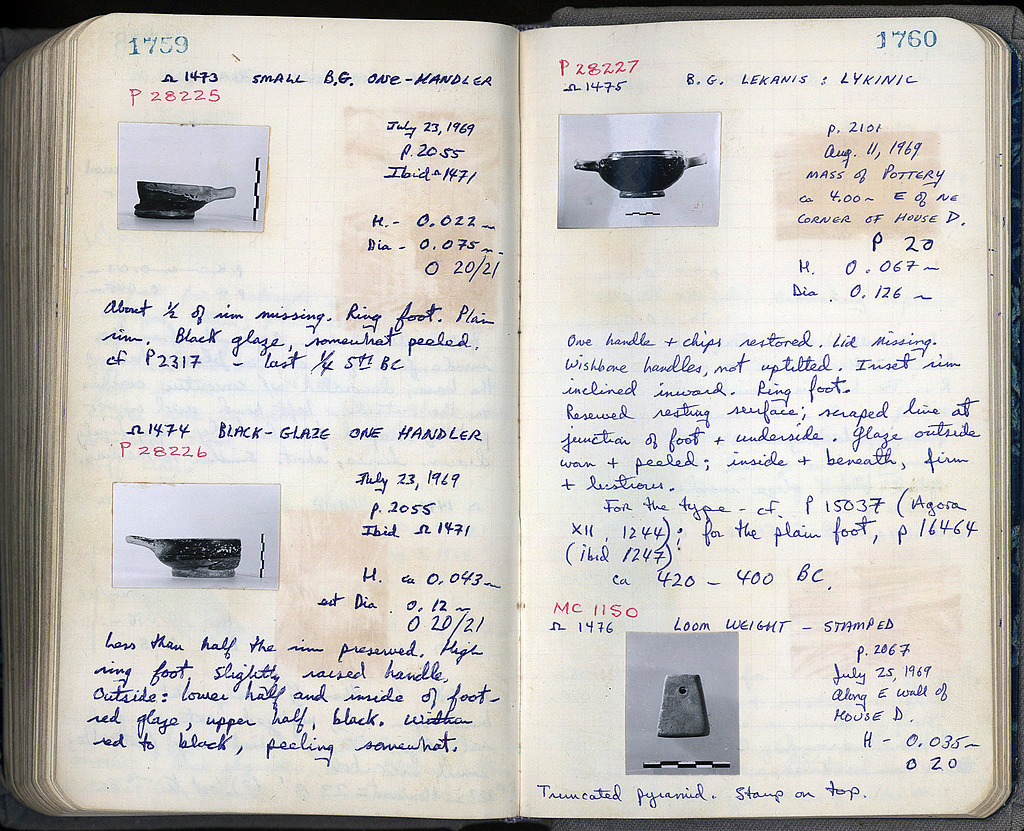 1759
Ω 1473 SMALL B.G. ONE-HANDLER
P 28225
July 23, 1969
p. 2055
Ibid Ω 1471
H. - 0.022 m
Dia - 0.075 m
O 20/21
About ½ of rim missing. Ring foot. Plain
rim. Black glaze, somewhat peeled.
cf P 2317 - last ¼ 5th BC
Ω 1474 BLACK-GLAZE ONE HANDLER
P 28226
July 23, 1969
p. 2055
Ibid Ω 1471
H. ca 0.043 m
est Dia. 0.12 m
O 20/21
Less than half the rim preserved. High
ring foot, slightly raised handle,
Outside: lower half and inside of foot-
red glaze, upper half, black. Within
red to black, peeling somewhat.
1760
P 28227
Ω 1475 B.G. LEKANIS: LYKINIC
p. 2101
Aug. 11, 1969
MASS OF POTTERY
ca 4.00 m E OF NE
CORNER OF HOUSE D.
P 20
H. 0.067 m
Dia. 0.126 m
One handle + chips restored. Lid missing.
Wishbone handles, not uptilted. Inset rim
inclined inward. Ring foot.
Reserved resting surface; scraped line at
junction of foot + underside. Glaze outside
worn + peeled; inside + beneath, firm
+ lustrous.
For the type - cf. P 15037 (Agora
XII, 1244); for the plain foot, P 16464
(ibid 1247)
ca 420 - 400 BC.
MC 1150
Ω 1476 LOOM WEIGHT - STAMPED
p. 2067
July 25, 1969
Along E wall of
HOUSE D.
H - 0.035 m
O 20
Truncated pyramid. Stamp on top.